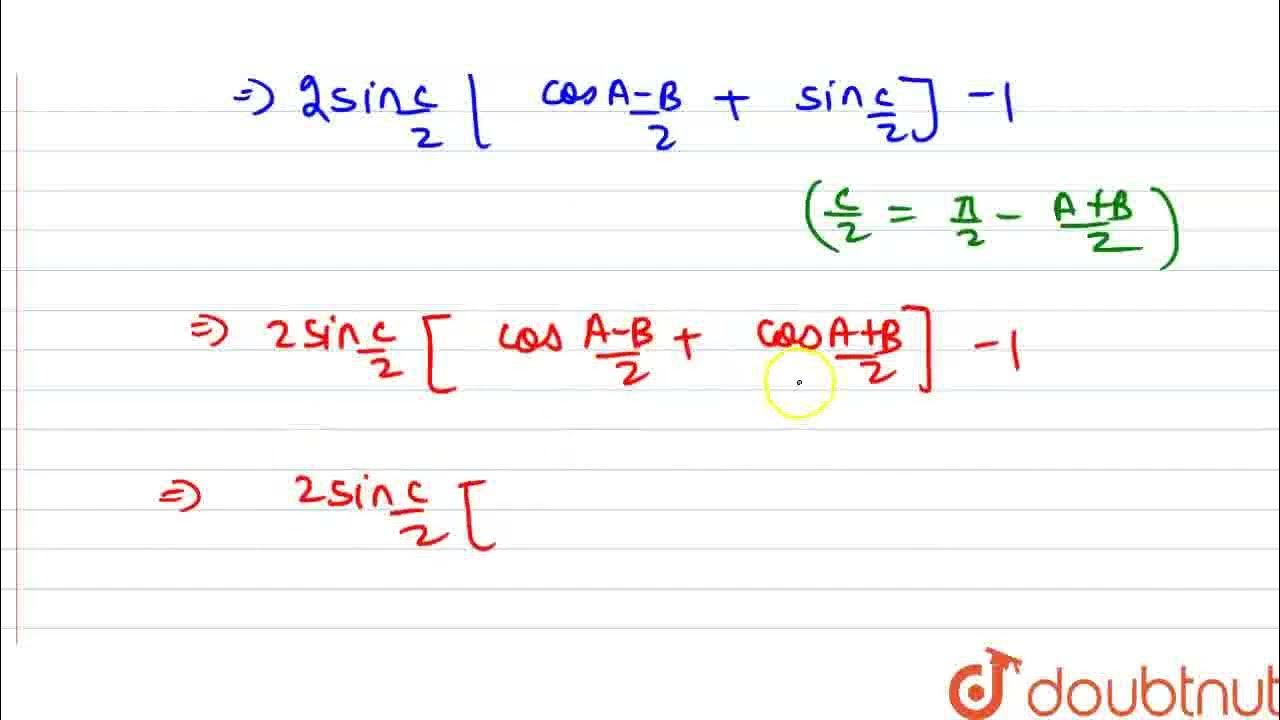 ⇒ 2 sin C/2 [ cos A-B/2 + sin C/2 ] - 1
( C/2 = π/2 - A+B/2 )
⇒ 2 sin C/2 [ cos A-B/2 + cos A+B/2 ] - 1
⇒ 2 sin C/2 [
doubtnut